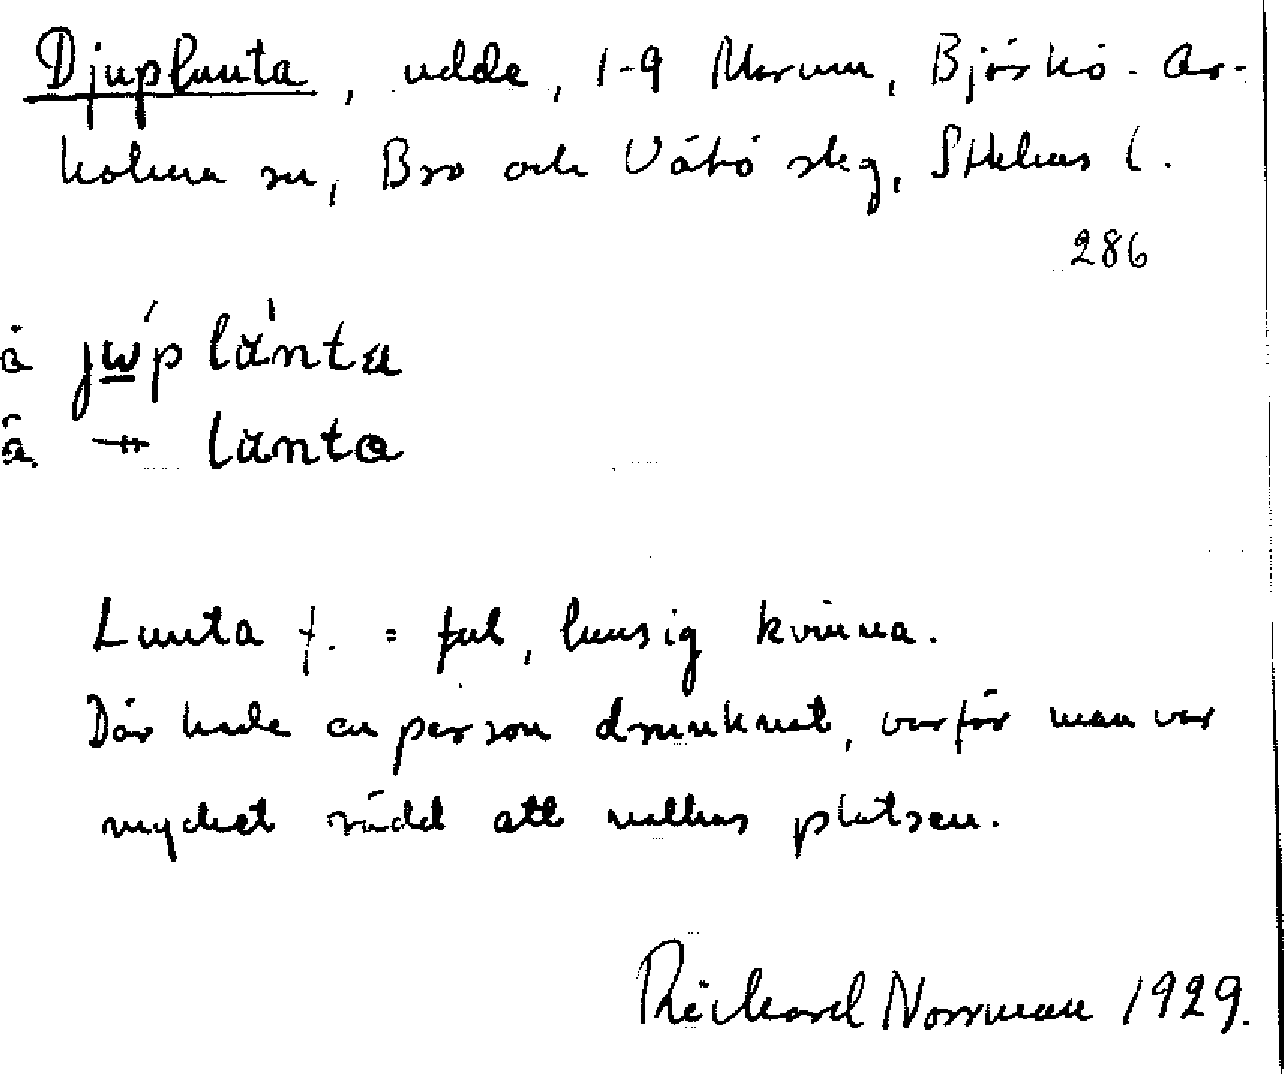 Djuplunta, udde, 1-9 Marum, Björkö-Ar-
holma sn, Bro och Vätö skg, Sthlms l.
286
lunta
Lunta f. = ful, lunsig kvinna.
Där hade en person drunknat, varför man var
mycket rädd att nalkas platsen.
Richard Norrman 1929.